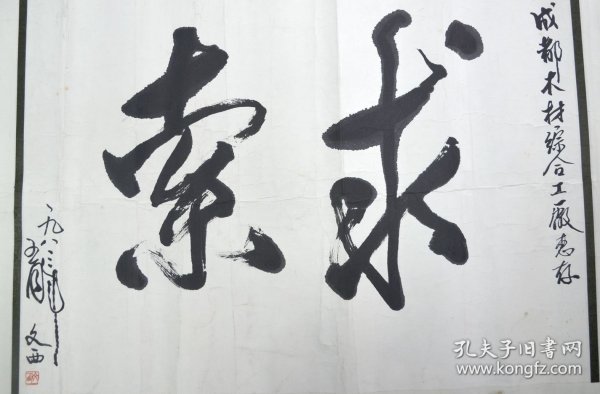 成都木材综合工厂惠存
求索
一九八三年
文西
孔夫子旧书网
www.kongfz.com